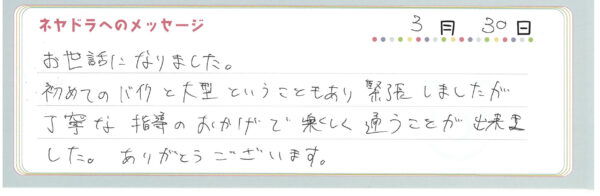 ネヤドラへのメッセージ 3月 30日
お世話になりました。
初めてのバイクと大型ということもあり 緊張しましたが
丁寧な 指導のおかげで 楽しく 通うことが 出来ま
した。 ありがとうございます。